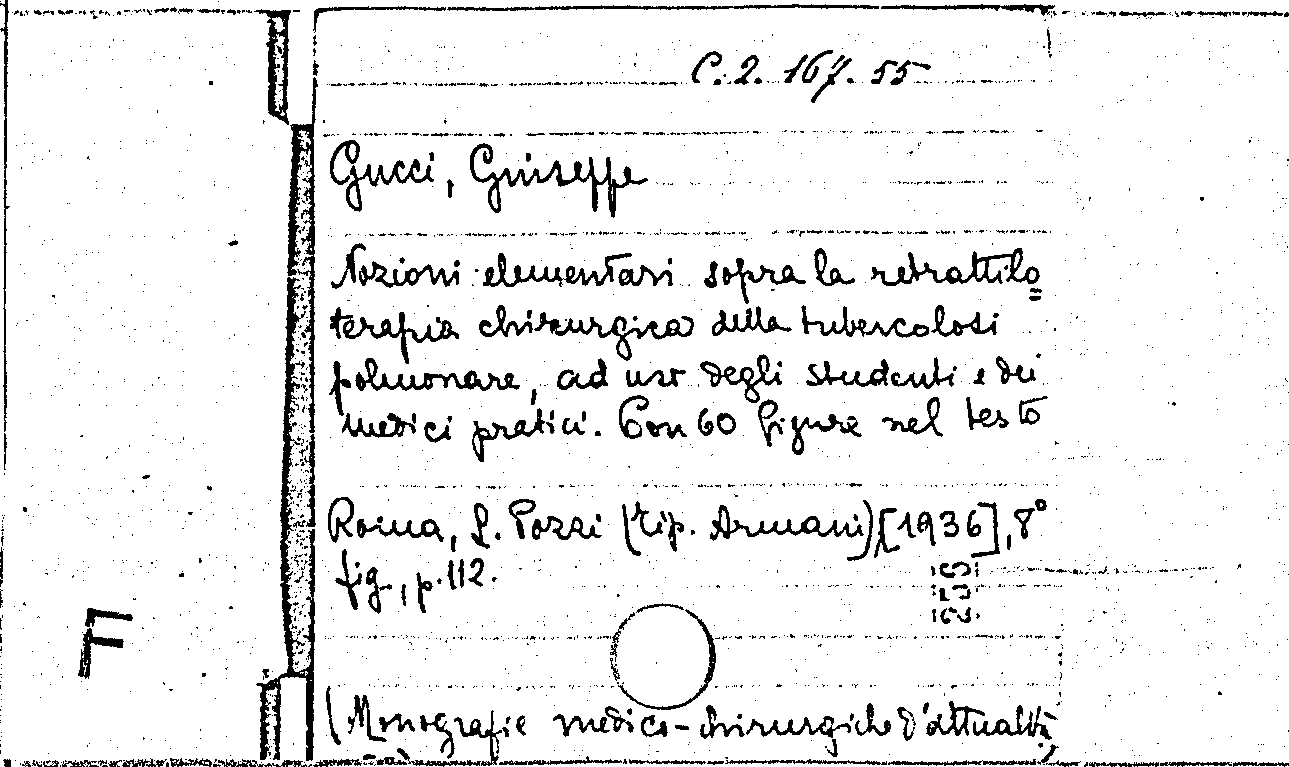 C. 2. 167. 55
Gucci, Giuseppe
Nozioni elementari sopra la retrattilo=
terapia chirurgica della tubercolosi
polmonare, ad uso degli studenti e dei
medici pratici. Con 60 figure nel testo
Roma, L. Pozzi (tip. Armani), [1936], 8°
fig., p. 112.
F
(Monografie medico-chirurgiche d'attualità,